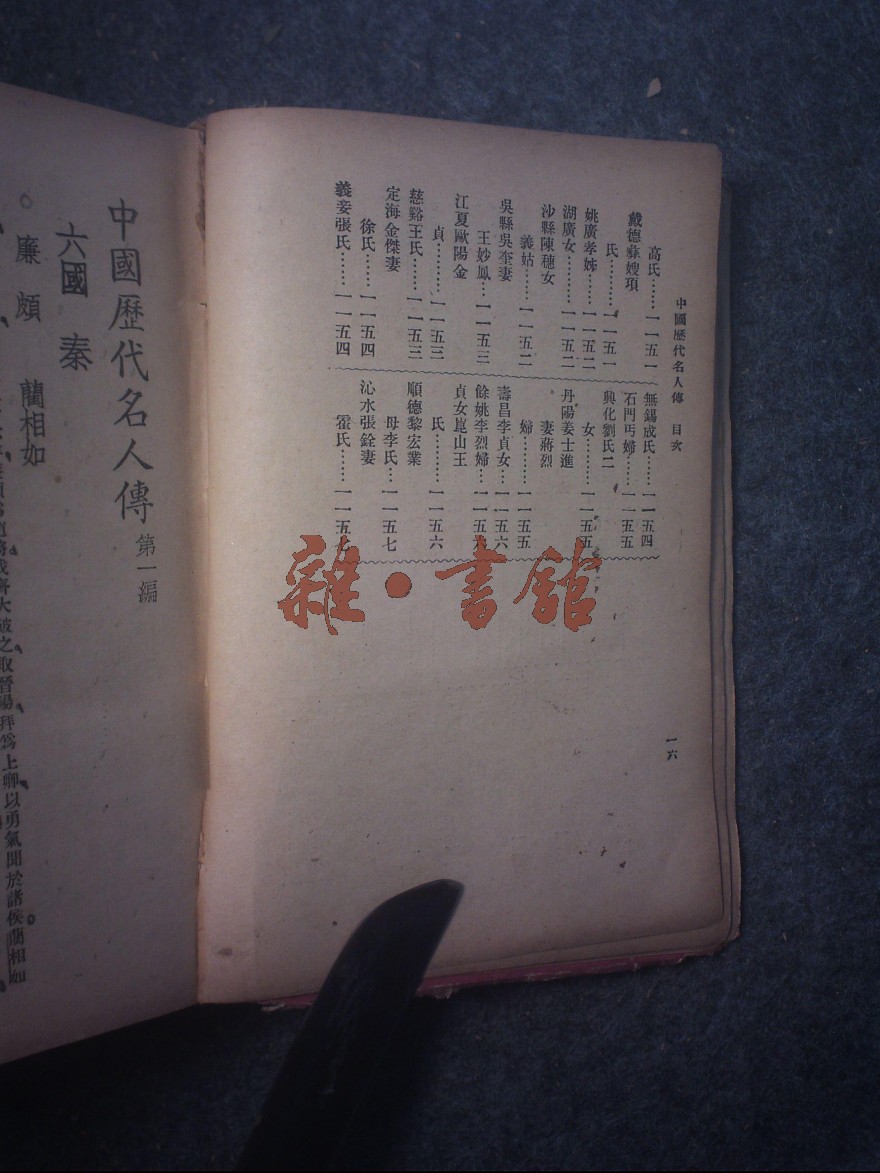 中國歷代名人傳 目次
高氏……一一五一
戴德彝嫂項
氏……一一五一
姚廣孝姊……一一五二
湖廣女……一一五二
沙縣陳穗女
義姑……一一五二
吳縣吳奎妻
王妙鳳…一一五三
江夏歐陽金
貞……一一五三
慈谿王氏……一一五三
定海金傑妻
徐氏……一一五四
義妾張氏……一一五四
無錫成氏……一一五四
石門丐婦……一一五五
興化劉氏二
女……一一五五
丹陽姜士進
妻蔣烈
婦……一一五五
壽昌李貞女…一一五六
餘姚李烈婦…一一五六
貞女崑山王
氏……一一五六
順德黎宏業
母李氏…一一五七
沁水張銓妻
霍氏……一一五七
一六
雜·書館
中國歷代名人傳 第一編
六國 秦
廉頗 藺相如
大破之取晉陽拜爲上卿以勇氣聞於諸侯藺相如